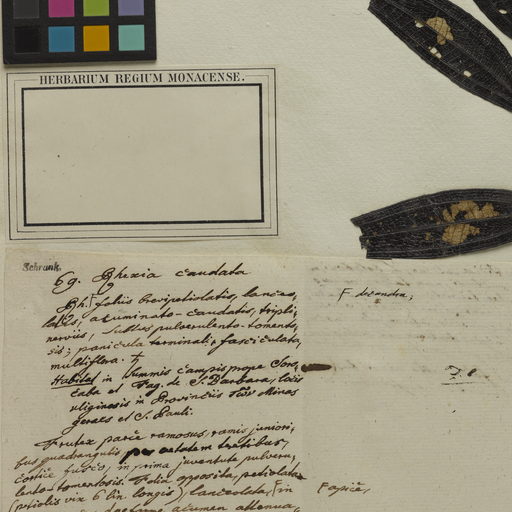 HERBARIUM REGIUM MONACENSE.
Schrank.
69. Rhexia caudata
Rh. foliis brevipetiolatis, lanceo,
latis, acuminato-caudatis, tripli,
nerviis, subtus pulverulento-tomento,
sis; panicula terminali, fasciculata,
multiflora. ♄
F decandra;
Habitat in summis campis prope Soro,
caba et Fag. de S. Barbara, locis
uliginosis in Provinciis Minas
geraës et S. Pauli.
Frutex parce ramosus, ramis juniori,
bus quadrangulis per aetatem teretibus,
cortice fusco, in prima juventute pulveru,
lento-tomentosis. Folia opposita, petiolata
(petiolis vix 6 lin. longis) lanceolata, in
F apice,
acumen attenua,